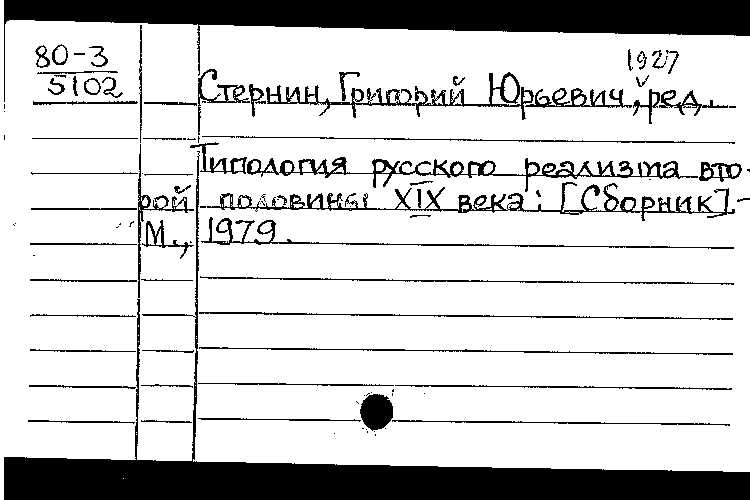 80-3
5102
1927
Стернин, Григорий Юрьевич, ред.
Типология русского реализма вто-
рой половины XIX века: [Сборник].-
М., 1979.